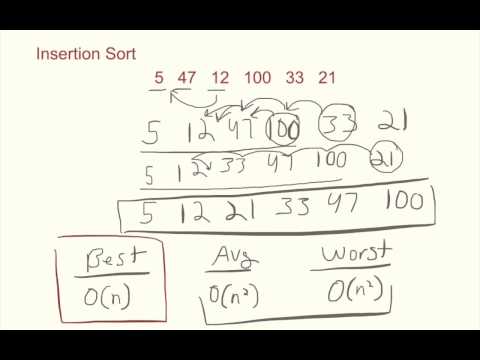 Insertion Sort
5 47 12 100 33 21
5 12 47 100 33 21
5 12 33 47 100 21
5 12 21 33 47 100
Best Avg Worst
O(n) O(n²) O(n²)